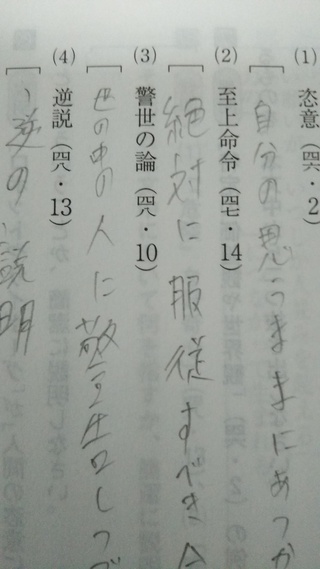 (1) 恣意(四六・2)
〔自分の思うままにあつか
(2) 至上命令(四七・14)
〔絶対に服従すべき
(3) 警世の論(四八・10)
〔世の中の人に警告しつづ
(4) 逆説(四八・13)
〔逆の説明